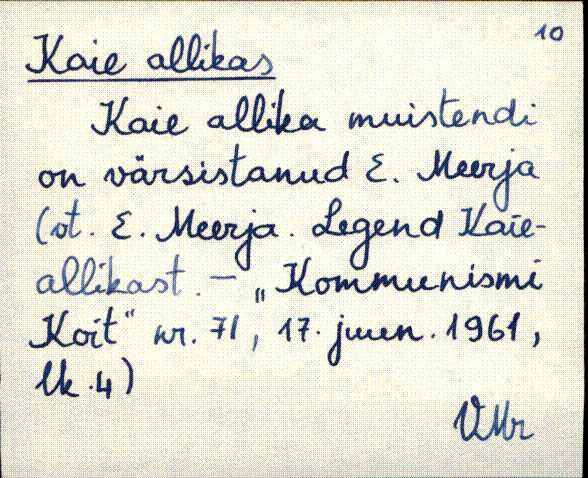 10
Kaie allikas
Kaie allika muistendi
on värsistanud E. Meerja
(vt. E. Meerja. Legend Kaie-
allikast. – „Kommunismi
Koit“ nr. 71, 17. juun. 1961,
lk. 4)
VMr